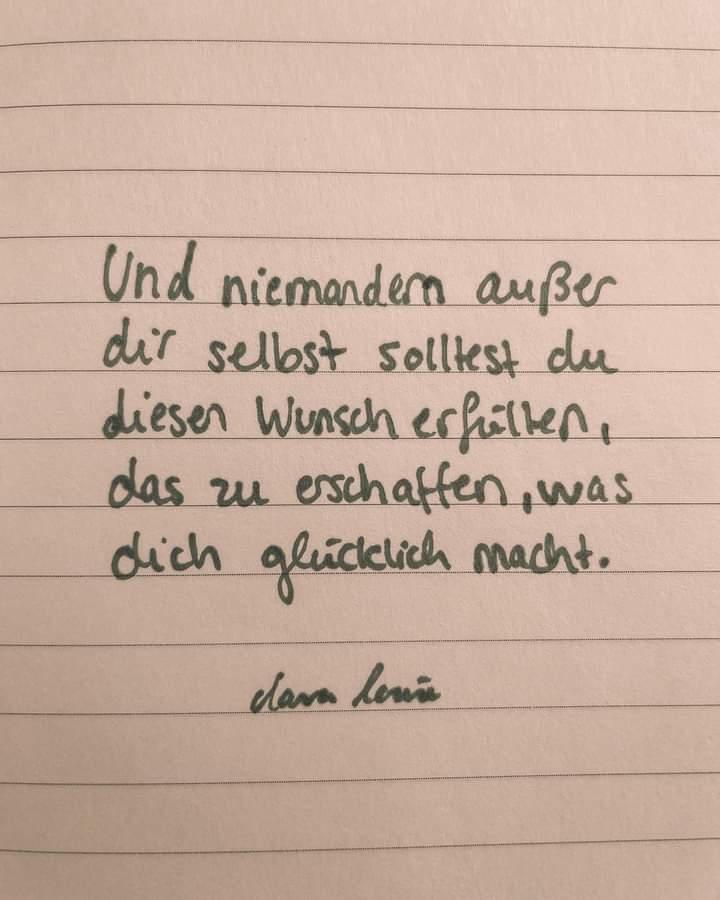 Und niemandem außer
dir selbst solltest du
diesen Wunsch erfüllen,
das zu erschaffen, was
dich glücklich macht.
clara louise